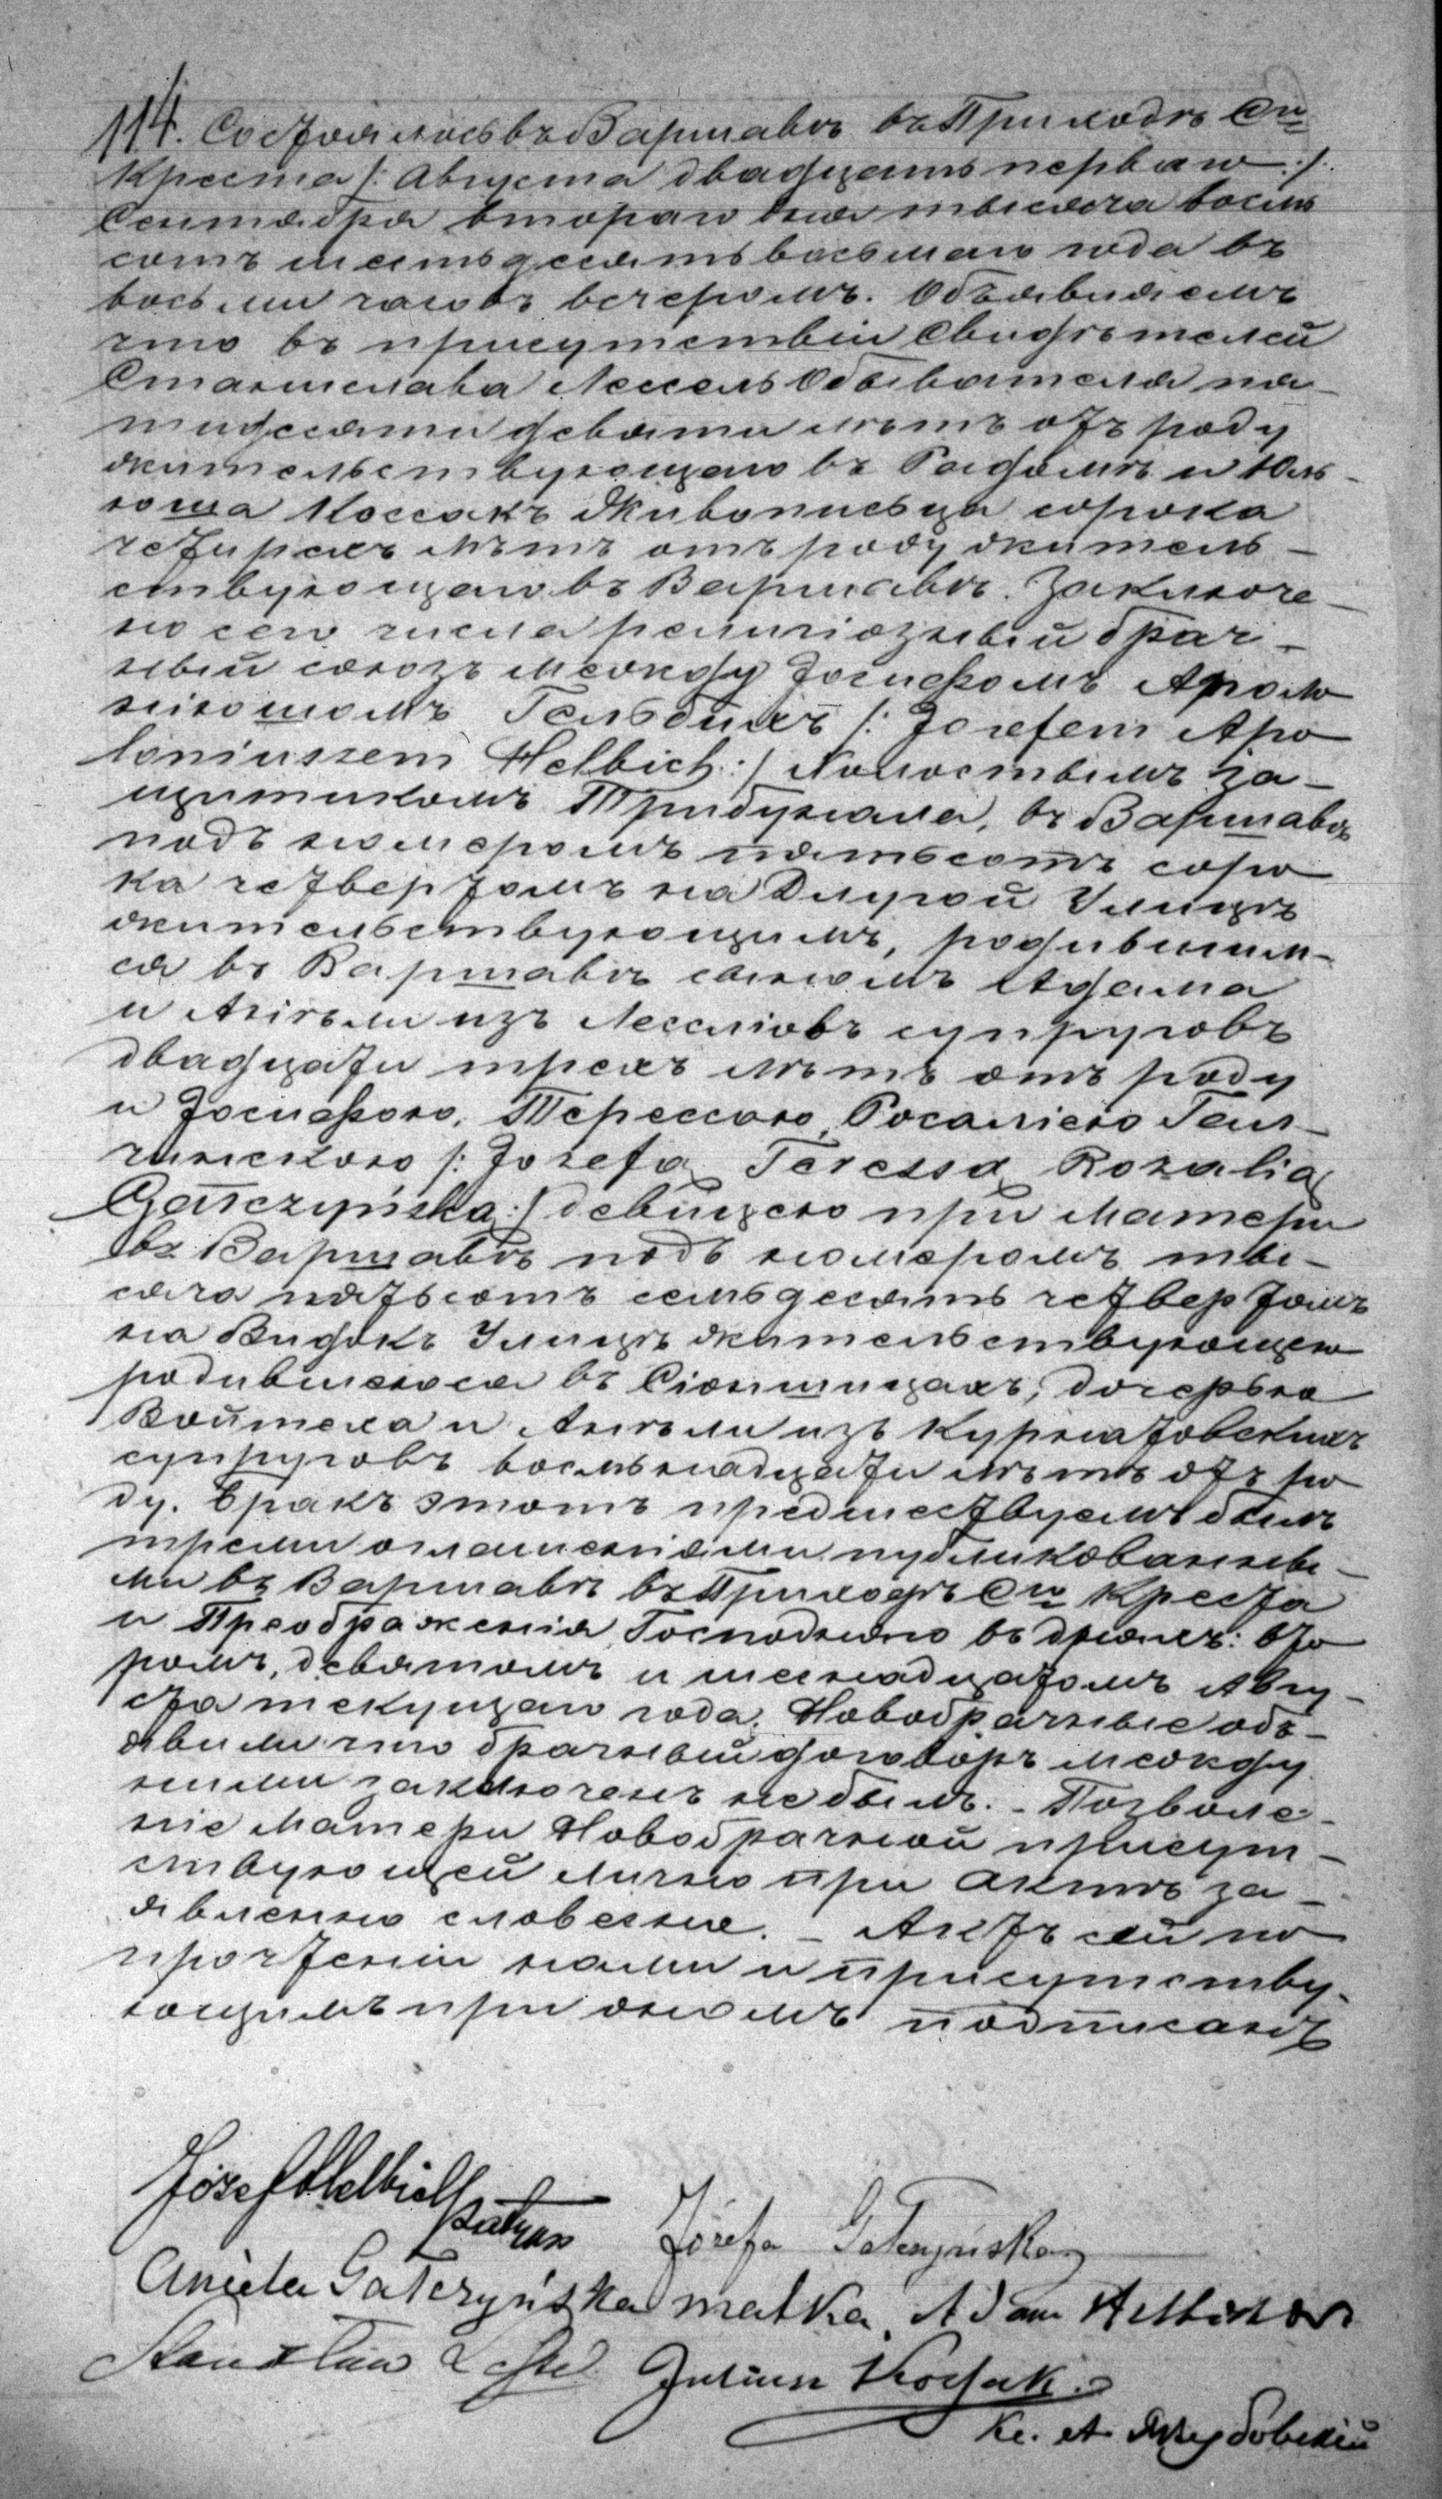 114. Состоялось въ Варшавѣ въ Приходѣ Сго
Креста /: Августа двадцать перваго :/
Сентября втораго дня тысяча восемь
сотъ шестьдесятъ восьмаго года въ
восьми часовъ вечеромъ. Объявляемъ
что въ присутствіи Свидѣтелей
Станислава Лессель Обывателя пя-
тидесяти девяти лѣтъ отъ роду
жительствующаго въ Радомѣ и Юль-
юша Коссакъ Живописьца сорока
четирехъ лѣтъ отъ роду житель-
ствующаго въ Варшавѣ. Заключе-
но сего числа религіозный брач-
ный союзъ между Іосифомъ Аполо
ніюшомъ Гельбихъ /: Józefem Apo
loniuszem Helbich :/ Холостымъ За-
щитникомъ Трибунала, въ Варшавѣ
подъ номеромъ пятьсотъ соро
ка четвертомъ на Длугой Улицѣ
жительствующимъ, родившим-
ся въ Варшавѣ сыномъ Адама
и Анѣли изъ Лесслювъ супруговъ
двадцати трехъ лѣтъ отъ роду
и Іосифою, Терессою, Росаліею Гал-
чинскою /: Józefą Teressą Rozalią
Gałczyńską :/ девицею при Матери
въ Варшавѣ подъ номеромъ ты-
сяча пятьсотъ семьдесятъ четвертомъ
на Видокъ Улицѣ жительствующею
родившеюся въ дочерью
Войтеха и Анѣли изъ Курнатовскихъ
супруговъ восьмнадцати лѣтъ отъ ро
ду. Бракъ этотъ предшествуемъ былъ
тремя оглашеніями публикованны-
ми въ Варшавѣ въ Приходѣ Сго Креста
и Преображенія Господняго въ дняхъ: вто
ромъ, девятомъ и шеснадцатомъ Авгу-
ста текущаго года. Новобрачные объ-
явили что брачный договоръ между
ними заключенъ небылъ. - Позволе-
ніе Матери Новобрачной присут-
ствующей лично при Актѣ за-
явленно словесно. - Актъ сей по
прочтеніи нами и присутству-
ющимъ при ономъ подписанъ
Józef A Helbich
Patron Józefa Gałczyńska
Aniela Gałczyńska matka, Adam Helbich
Stanisław Lessel Juliusz Kossak
Кс. А